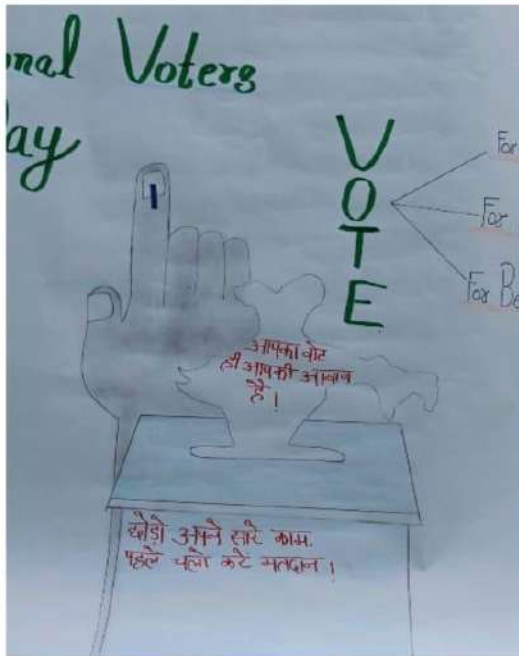 nal Voters
ay
VOTE
For
For
For Be
आपका वोट
ही आपकी आवाज
है !
छोड़ो अपने सारे काम,
पहले चलो करे मतदान !